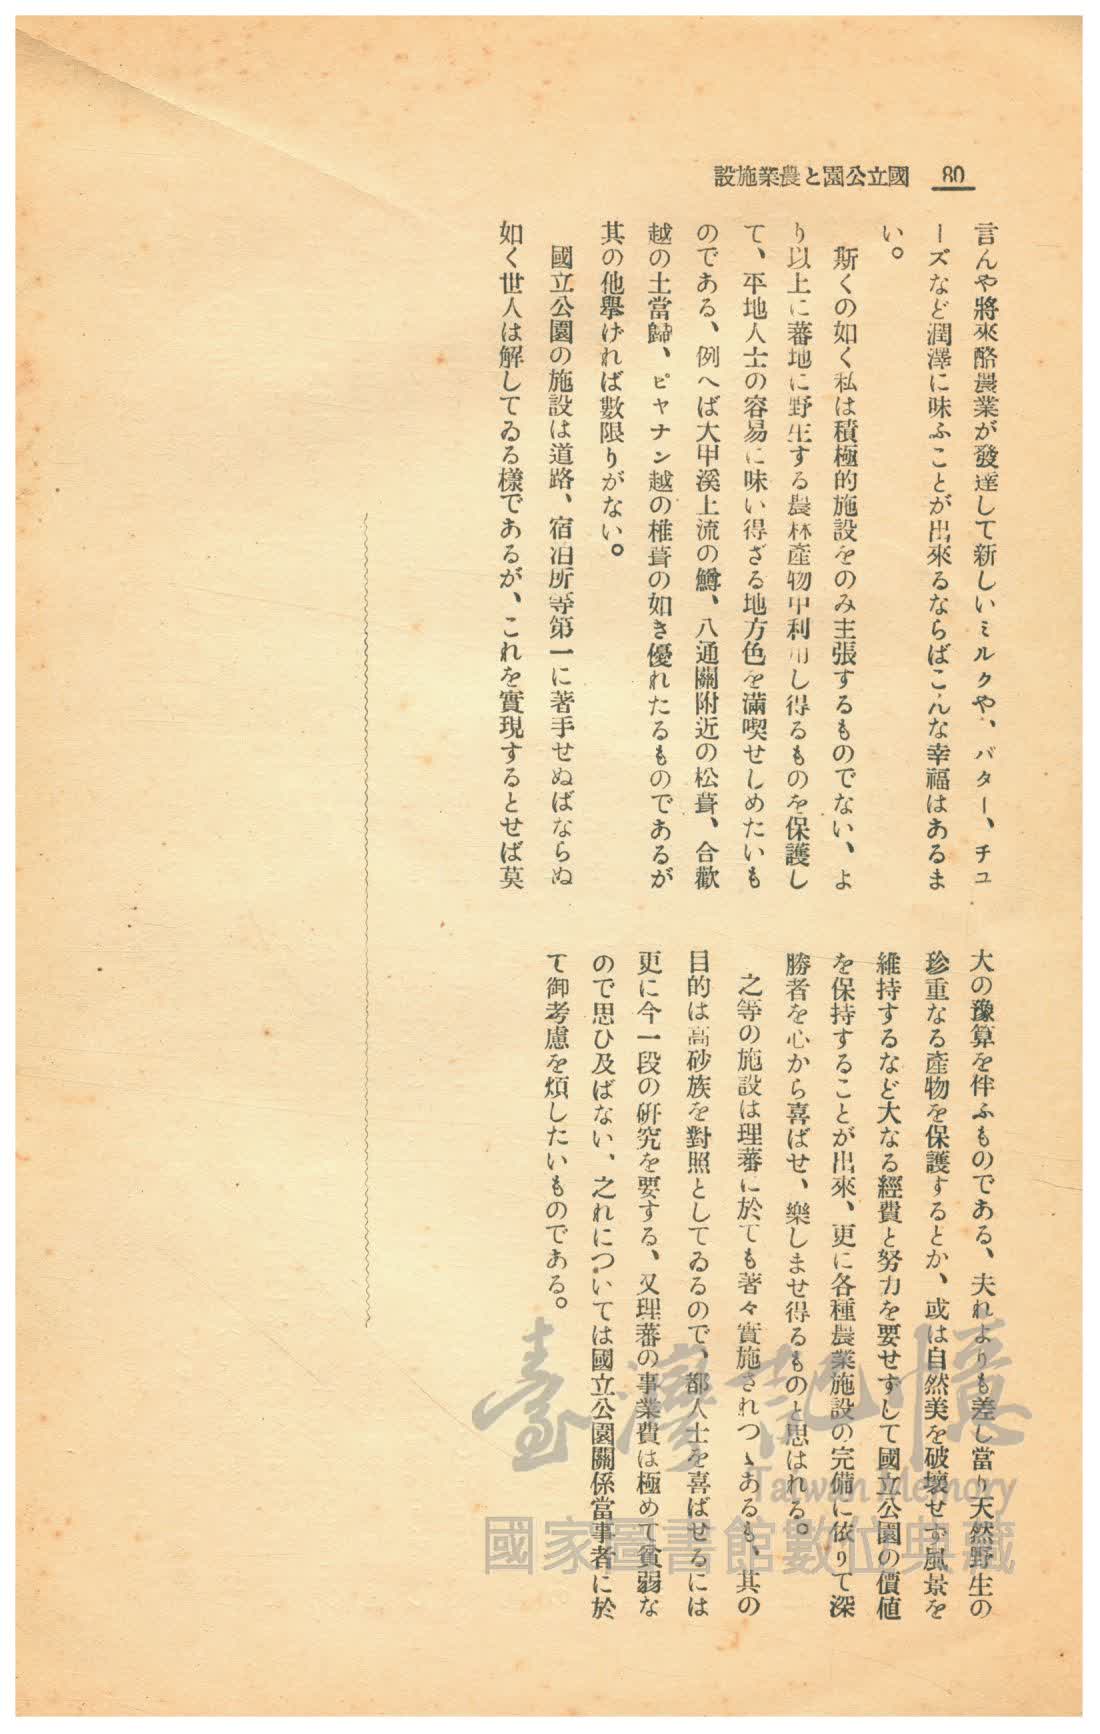 80
設施業農と園公立國
言んや將來酪農業が發達して新しいミルクや、バター、チユ
ーズなど潤澤に味ふことが出來るならばこんな幸福はあるま
い。
斯くの如く私は積極的施設をのみ主張するものでない、よ
り以上に蕃地に野生する農林產物中利用し得るものを保護し
て、平地人士の容易に味い得ざる地方色を滿喫せしめたいも
のである、例へば大甲溪上流の鱒、八通關附近の松茸、合歡
越の土當歸、ピヤナン越の椎茸の如き優れたるものであるが
其の他擧げれば數限りがない。
國立公園の施設は道路、宿泊所等第一に著手せぬばならぬ
如く世人は解してゐる樣であるが、これを實現するとせば莫
大の豫算を伴ふものである、夫れよりも差し當り天然野生の
珍重なる產物を保護するとか、或は自然美を破壞せず風景を
維持するなど大なる經費と努力を要せずして國立公園の價値
を保持することが出來、更に各種農業施設の完備に依りて深
勝者を心から喜ばせ、樂しませ得るものと思はれる。
之等の施設は理蕃に於ても著々實施されつゝあるも、其の
目的は高砂族を對照としてゐるので、都人士を喜ばせるには
更に今一段の硏究を要する、又理蕃の事業費は極めて貧弱な
ので思ひ及ばない、之れについては國立公園關係當事者に於
て御考慮を煩したいものである。
臺灣記憶
Taiwan Memory
國家圖書館數位典藏